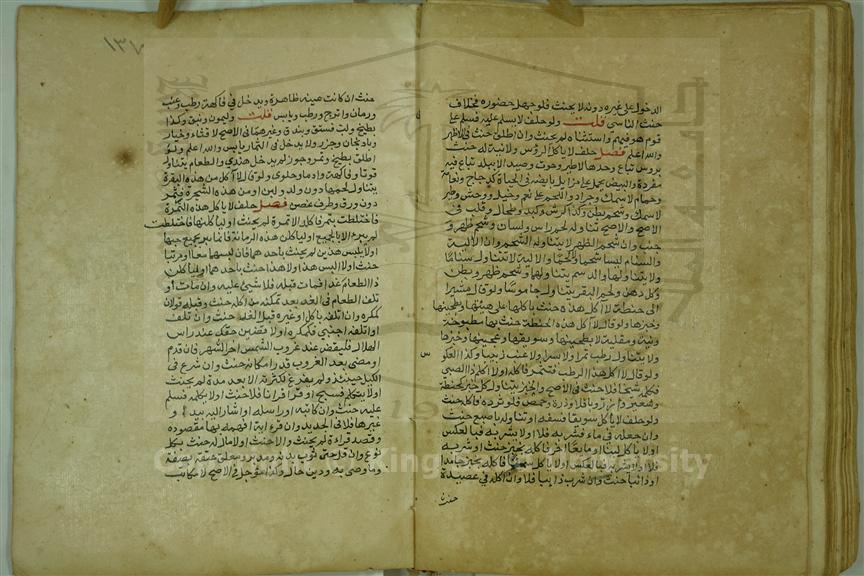 الدخول على غيره دونه لا يحنث فلو جهل حضوره فخلاف
حنث الناسي قلت ولو حلف لا يسلم عليه فسلم على
قوم هو فيهم واستثناه لم يحنث وان اطلق حنث في الاظهر
والله اعلم فصل حلف لا ياكل الرؤس ولا نية له حنث
بروس تباع وحدها لا طير وحوت وصيد الا ببلد تباع فيه
مفردة والبيض يحمل على مزايل بايضه في الحياة كدجاج ونعامة
وحمام لا سمك وجراد واللحم على نعم وخيل ووحش وطير
لا سمك وشحم بطن وكذا كرش وكبد وطحال وقلب في
الاصح والاصح تناوله لحم راس ولسان وشحم ظهر و
جنب وان شحم الظهر لا يتناوله الشحم وان الالية
والسنام ليسا شحما ولا لحما والالية لا تتناول سناما
ولا يتناولها والدسم يتناولهما وشحم ظهر وبطن
وكل دهن ولحم البقر يتناول جاموسا ولو قال مشيرا
الى حنطة لا آكل هذه حنث باكلها على هيئتها وبطحينها
وخبزها ولو قال لا آكل هذه الحنطة حنث بها مطبوخة
ونية ومقلية لا بطحينها وسويقها وعجينها وخبزها
ولا يتناول رطب تمرا ولا بسرا ولا عنب زبيبا وكذا العكوس
ولو قال لا آكل هذا الرطب فتتمر فاكله او لا اكلم ذا الصبي
فكلمه شيخا فلا حنث في الاصح والخبز يتناول كل خبز كحنطة
وشعير وارز وباقلا وذرة وحمص فلو ثرده فاكله حنث
ولو حلف لا ياكل سويقا فسفه او تناوله باصبع حنث
وان جعله في ماء فشربه فلا او لا يشربه فبالعكس
او لا ياكل لبنا او مايعا اخر فاكله بخبز حنث او شربه
فلا او لا يشربه فبالعكس او لا ياكل سمنا فاكله بخبز جامدا
او ذائبا حنث وان شرب ذايبا فلا وان اكله في عصيدة
حنث
١٣٧
حنث ان كانت عينه ظاهرة ويدخل في فاكهة رطب وعنب
ورمان واترج ورطب ويابس قلت وليمون ونبق وكذا
بطيخ ولب فستق وبندق وغيرهما في الاصح لا قثاء وخيار
وباذنجان وجزر ولا يدخل في الثمار يابس والله اعلم ولو
اطلق بطيخ وتمر وجوز لم يدخل هندي والطعام يتناول
قوتا وفاكهة وادما وحلوى ولو قال لا آكل من هذه البقرة
يتناول لحمها دون ولد ولبن او من هذه الشجرة فثمر
دون ورق وطرف غصن فصل حلف لا ياكل هذه التمرة
فاختلطت بتمر فاكله الا تمرة لم يحنث او لياكلنها فاختلطت
لم يبر الا بالجميع او لياكلن هذه الرمانة فانما يبر بجميع حبها
او لا يلبس هذين لم يحنث باحدهما فان لبسهما معا او مرتبا
حنث او لا البس هذا ولا هذا حنث باحدهما او لياكلن
ذا الطعام غدا فمات قبله فلا شيء عليه وان مات او
تلف الطعام في الغد بعد تمكنه من اكله حنث وقبله قولان
كمكره وان اتلفه باكل او غيره قبل الغد حنث وان تلف
او اتلفه اجنبي فكمكره او لاقضين حقك عند راس
الهلال فليقض عند غروب الشمس اخر الشهر فان قدم
او مضى بعد الغروب قدر امكانه حنث وان شرع في
الكيل حينئذ ولم يفرغ لكثرته الا بعد مدة لم يحنث
او لا يتكلم فسبح او قرا قرانا فلا حنث او لا يكلمه فسلم
عليه حنث وان كاتبه او راسله او اشار اليه بيد او
غيرها فلا في الجديد وان قرء اية افهمه بها مقصوده
وقصد قراءة لم يحنث والا حنث او لا مال له حنث بكل
نوع وان قل حتى ثوب بدنه ومدبر ومعلق عتقه بصفة
وما وصى به ودين حال وكذا مؤجل في الاصح لا مكاتب